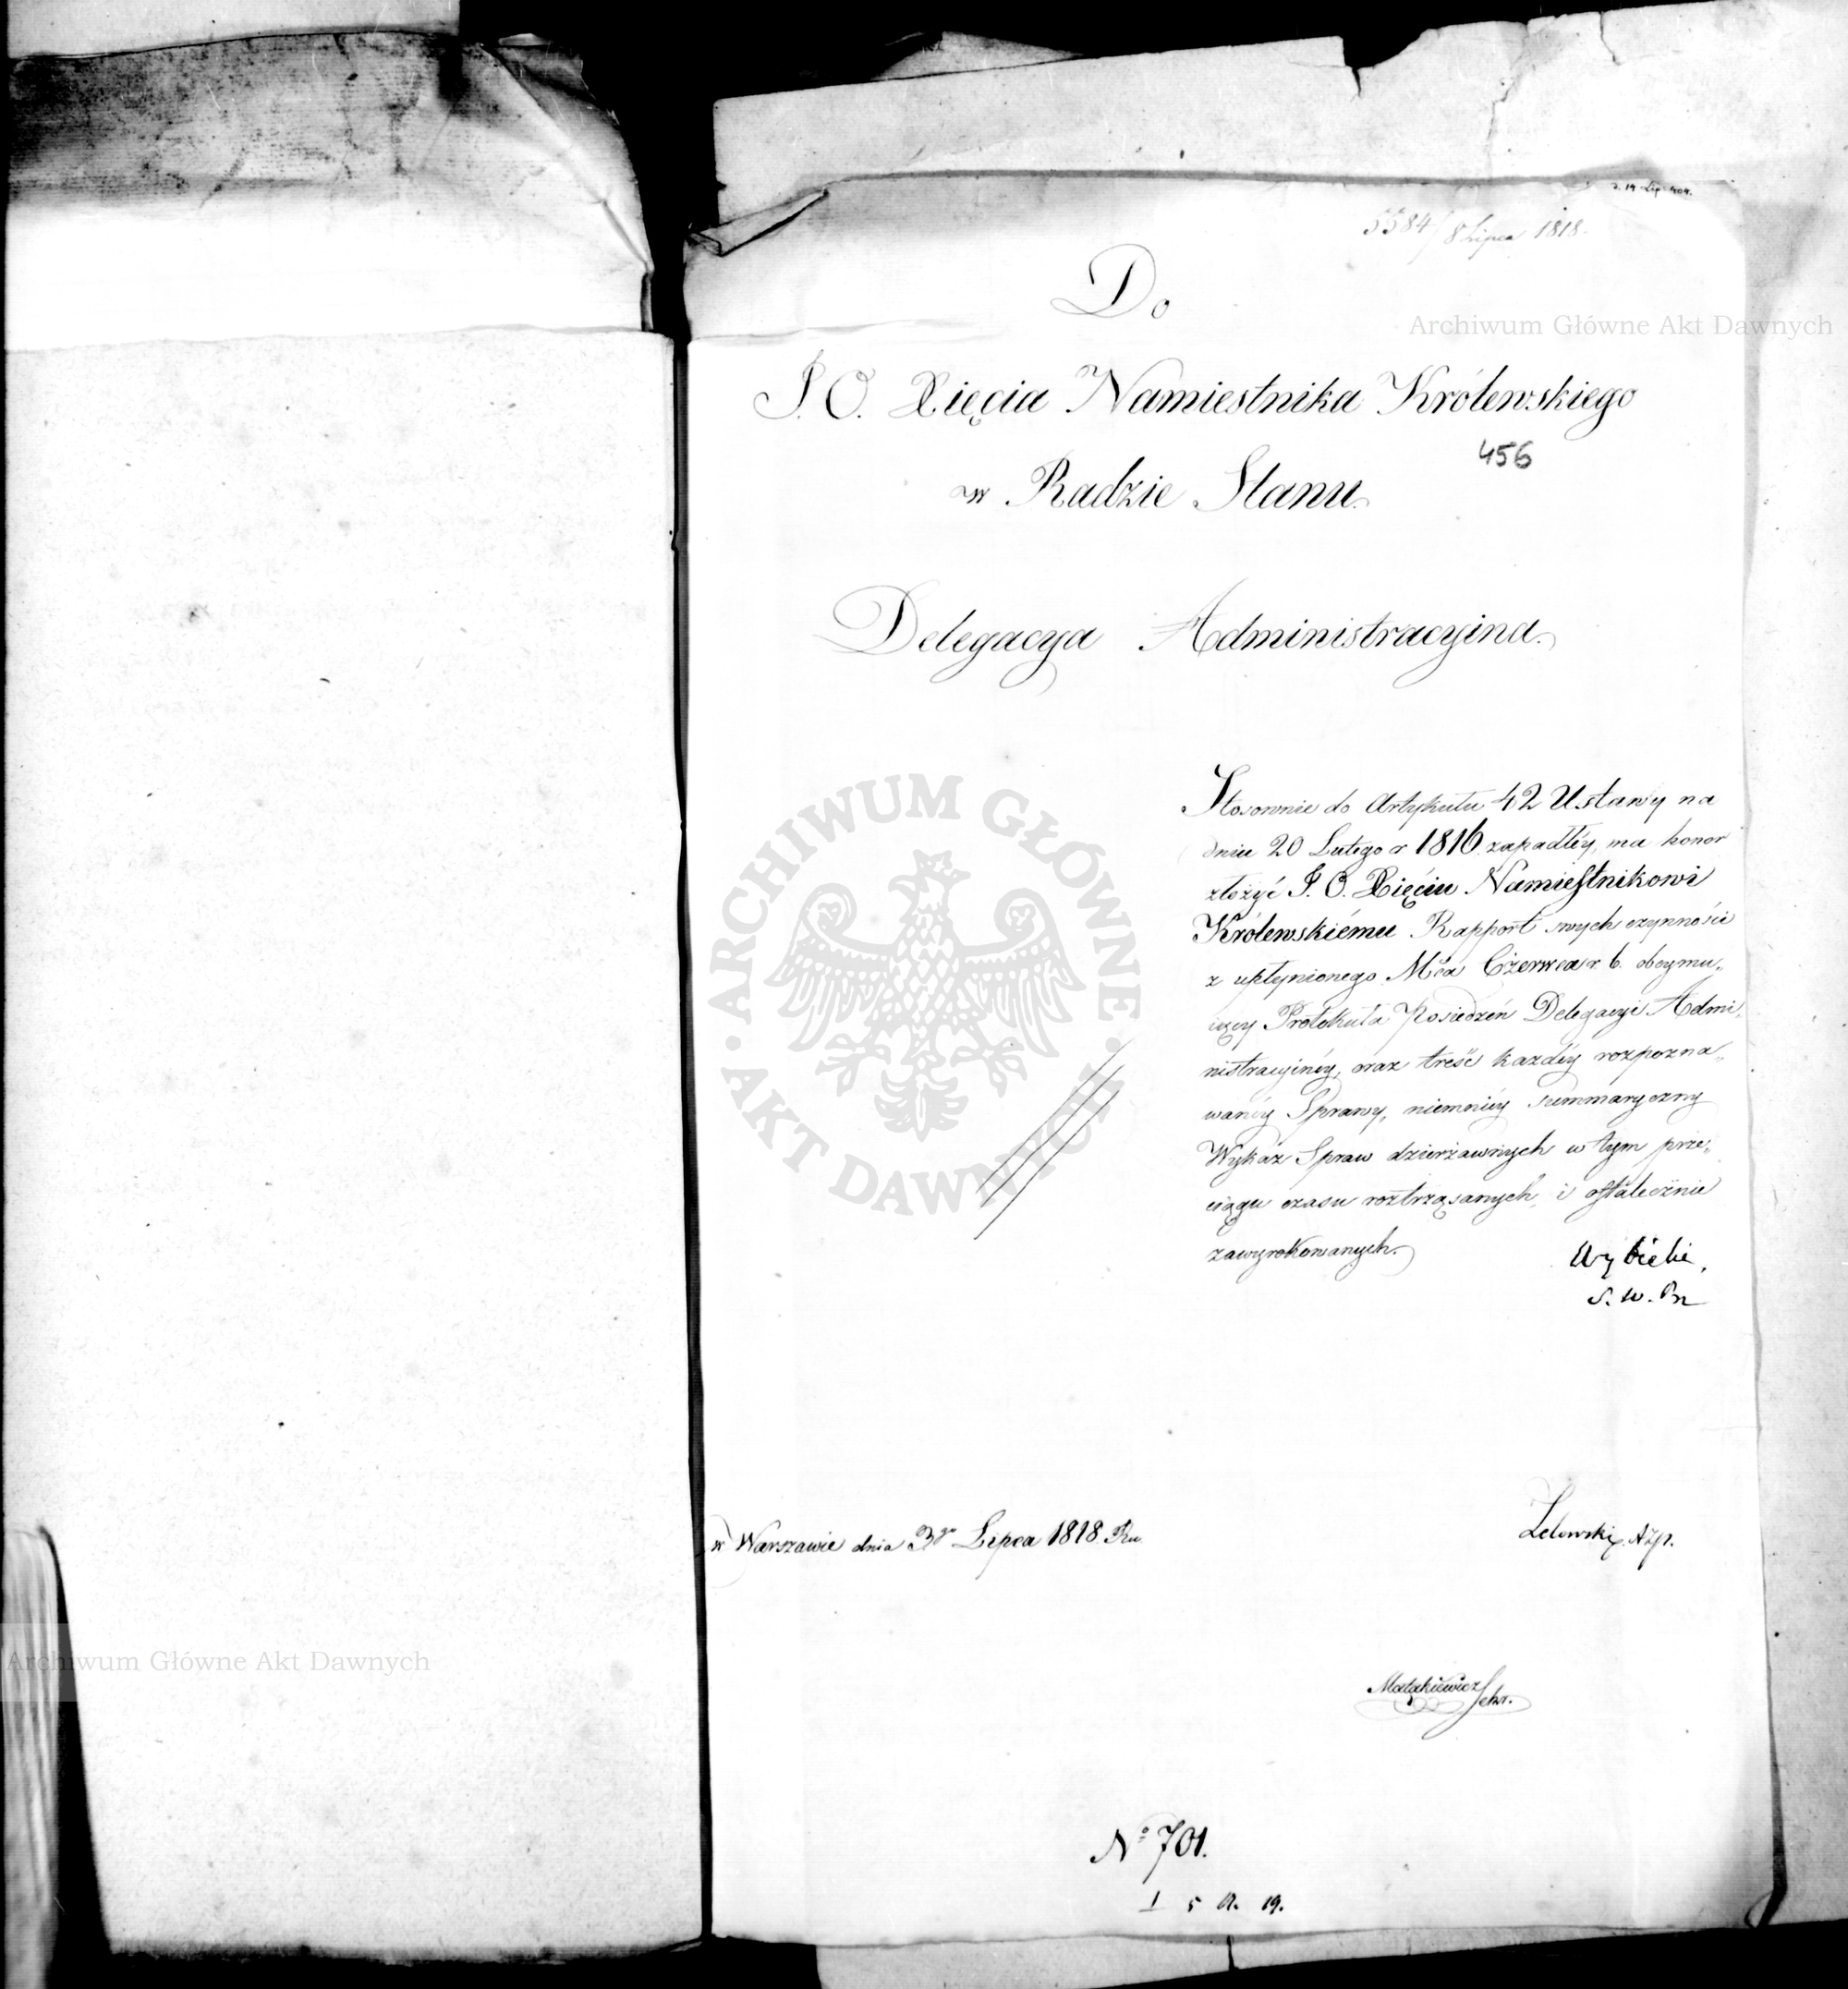 5584/8 Lipca 1818.
Do
Archiwum Główne Akt Dawnych
J. O. Xięcia Namiestnika Królewskiego
456
w Radzie Stanu.
Delegacya Administracyina.
Stosownie do Artykułu 42 Ustawy na
dniu 20 Lutego r 1816 zapadłéy, ma honor
złożyć J. O. Xięciu Namiestnikowi
Królewskiému Rapport swych czynności
z upłynionego Mca Czerwca r. b. obeymu„
iący Protokuła Posiedzeń Delegacyi Admi„
nistracyinéy, oraz treść każdéy rozpozna„
wanéy Sprawy, niemniéy summaryczny
Wykaz Spraw dzierżawnych w tym prze„
ciągu czasu roztrząsanych, i ostatecznie
zawyrokowanych.
Wybicki,
S. W. Pr
ARCHIWUM GŁÓWNE
AKT DAWNYCH
w Warszawie dnia 3go Lipca 1818 Ru
Zelowski Azp.
Archiwum Główne Akt Dawnych
Matakiewicz Sekr.
No 701.
I 5 A. 19.